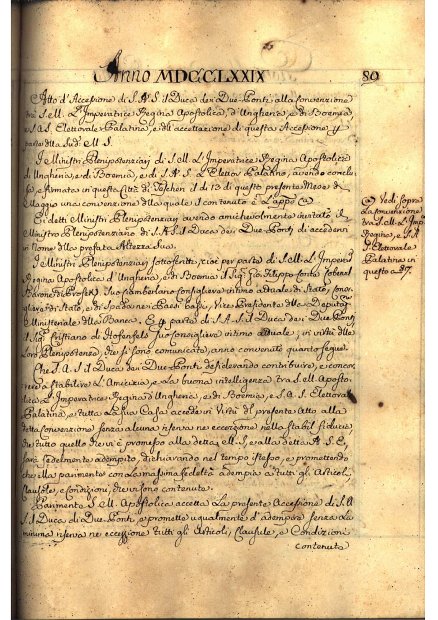 Anno MDCCLXXIX
80
Atto d'Accessione di S.A.S. il Duca dei Due-Ponti alla convenzione
tra S.M. L'Imperatrice Regina Apostolica, d'Ungheria, e di Boemia,
e S.A.S. Elettorale Palatina, e di accettazione di questa Accessione
parte della Sud.a M.S.
I Ministri Plenipotenziarj di S.M. L'Imperatrice Regina Apostolica
di Ungheria, e di Boemia, e di S.A.S. L'Elettor Palatino, avendo conclu
e firmato in questa Città di Teschen il dì 13 di questo presente Mese di
Maggio una convenzione della quale il contenuto è L'app.o
E i detti Ministri Plenipotenziarj avendo amichevolmente invitato il
Ministro Plenipotenziario di S.A.S. il Duca dei Due-Ponti di accedervi
in Nome della prefata Altezza Sua.
I Ministri Plenipotenziarj sottoscritti, cioè per parte di S.M. L'Imperat
Regina Apostolica d'Ungheria, e di Boemia il Sig.r Gio. Filippo Conte Cobenzl
Barone di Suo Ciamberlano Consigliere intimo attuale di Stato,
di Stato, e di Spada nei Paesi Bassi, Vice-Presidente della Deputaz.
Ministeriale della Banca. E p. parte di S.A.S. il Duca dei Due-Ponti,
il Sig.r Cristiano di Hofenfels suo Consigliere intimo attuale; in virtù delle
Loro Plenipotenze, che si sono comunicate, anno convenuto quanto segue.
Che S.A.S. il Duca dei Due-Ponti desiderando contribuire, e concor
a stabilire L'Amicizia, e La buona intelligenza tra S.M. Aposto
lica L'Imperatrice Regina d'Ungheria, e di Boemia, e S.A.S. Elettorale
Palatina, e tutta La sua Casa accede in Virtù del presente Atto alla
detta convenzione senza alcuna riserva ne eccezione nella stabil fiducia
che tutto quello che vi è promesso alla detta S.M., e alla detta A.S.E.
sarà fedelmente adempito, dichiarando nel tempo istesso, e promettendo
che ella parimente con La massima fedeltà adempia a tutti gli Articoli,
Clausole, e Condizioni, che vi sono contenute.
Parimente S.M. Apostolica accetta La presente Accessione di S.A.
S. il Duca di Due-Ponti, e promette ugualmente d'adempire senza La
minima riserva ne eccessione tutti gli Articoli, Clausule, e Condizioni
contenute
Vedi sopra
La convenzione
tra S.M. L'Imp.
Regina, e S.A.
Elettorale
Palatina in
questo a 37.